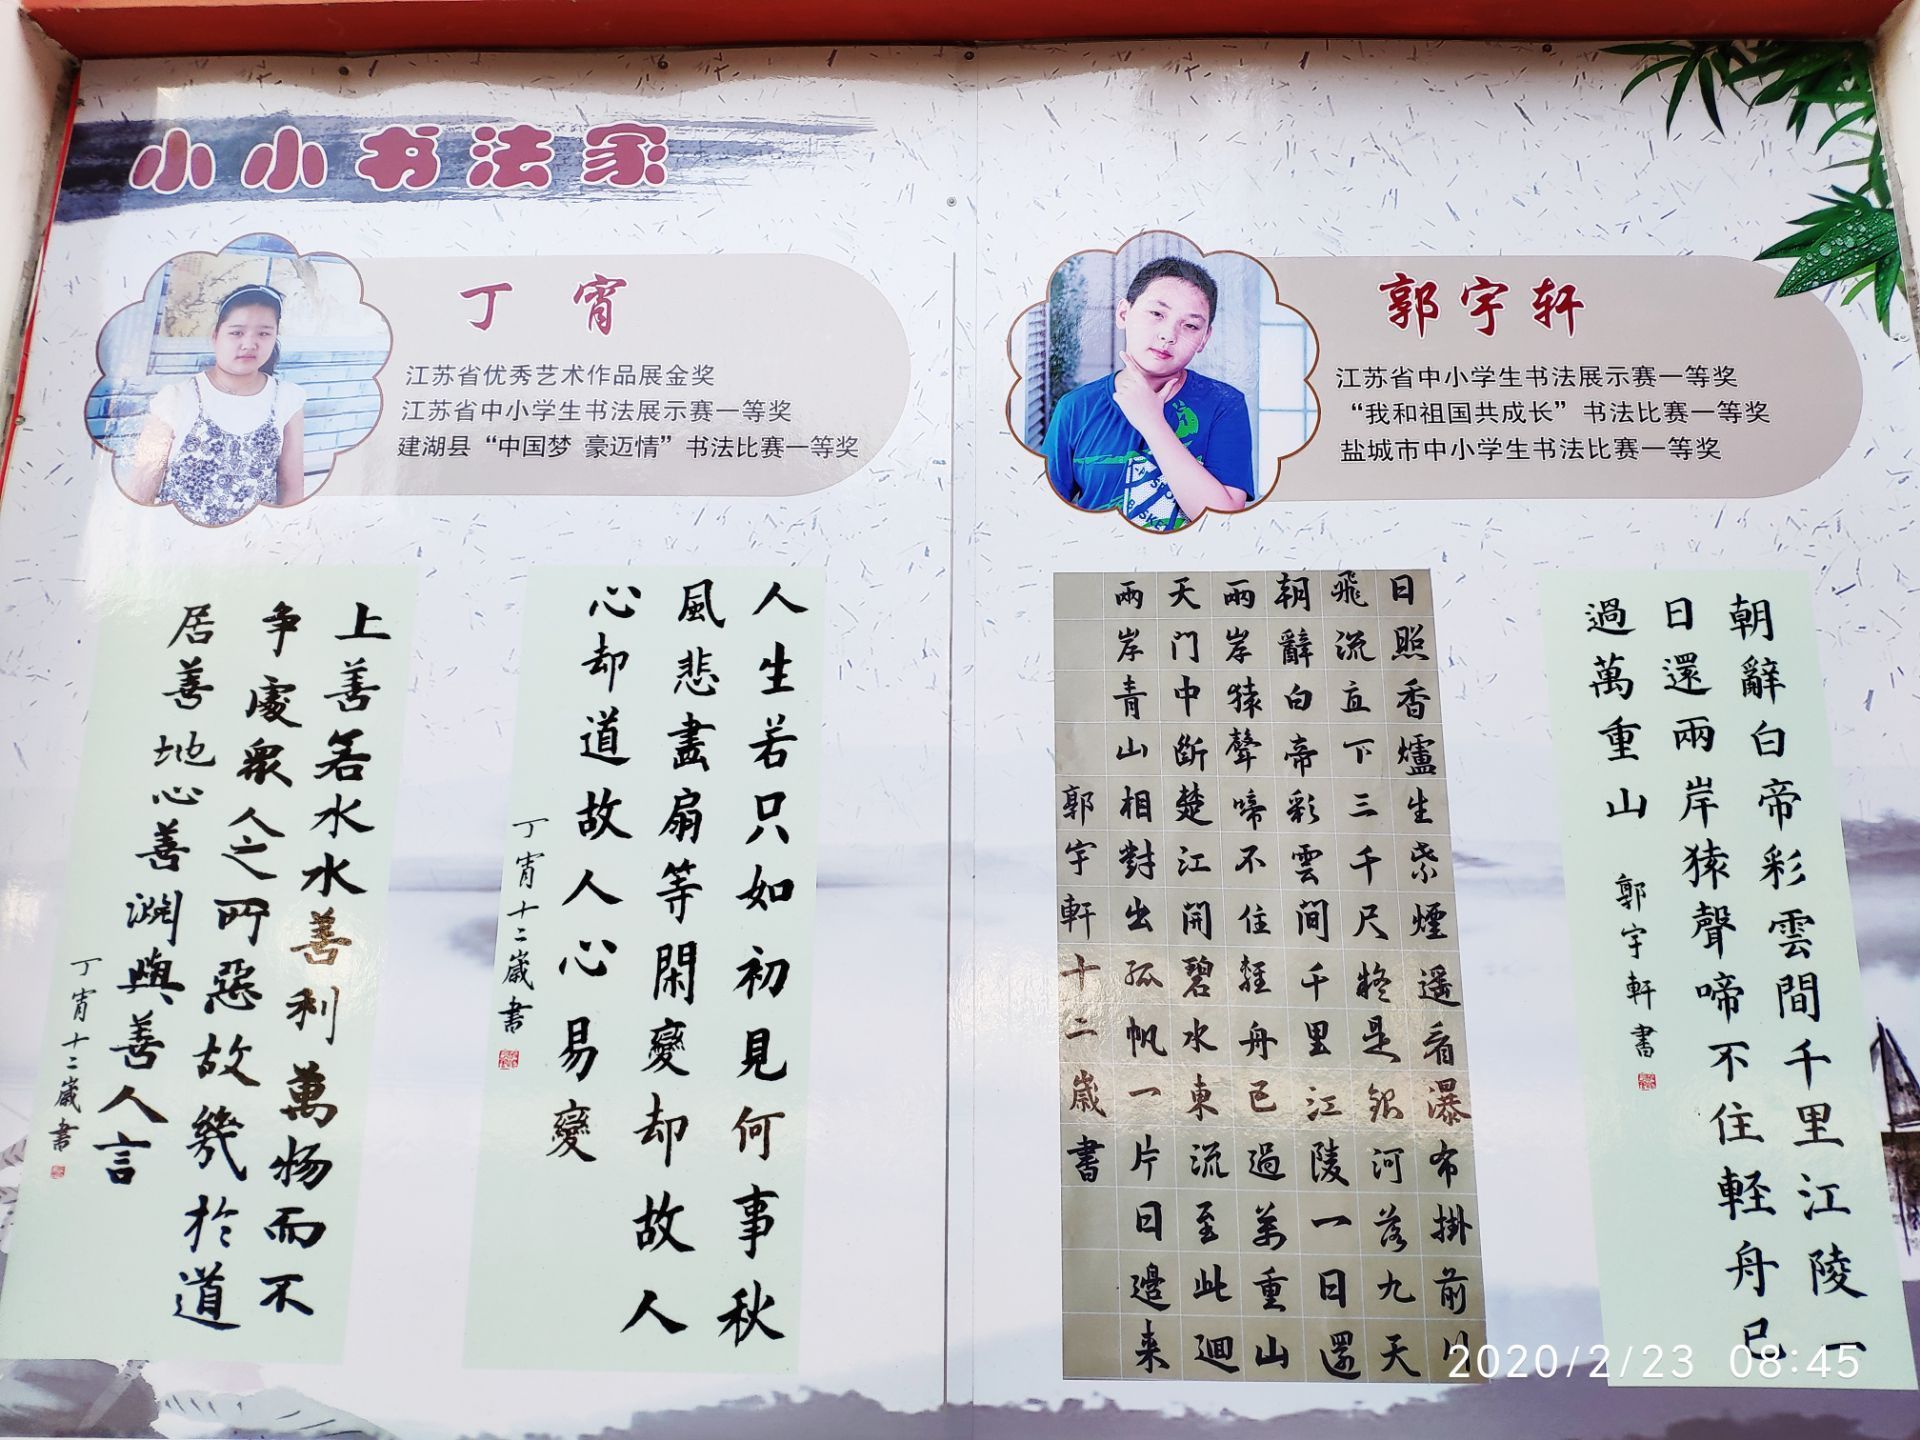 小小书法家
丁宵
江苏省优秀艺术作品展金奖
江苏省中小学生书法展示赛一等奖
建湖县“中国梦 豪迈情”书法比赛一等奖
郭宇轩
江苏省中小学生书法展示赛一等奖
“我和祖国共成长”书法比赛一等奖
盐城市中小学生书法比赛一等奖
上善若水水善利萬物而不
争處衆人之所惡故幾於道
居善地心善渊與善人言
丁宵十二歲書
人生若只如初見何事秋
風悲畫扇等閑變却故人
心却道故人心易變
丁宵十二歲書
日照香爐生紫煙遥看瀑布掛前川
飛流直下三千尺疑是銀河落九天
朝辭白帝彩雲間千里江陵一日還
兩岸猿聲啼不住輕舟已過萬重山
天门中斷楚江開碧水東流至此迴
兩岸青山相對出孤帆一片日邊来
郭宇軒十二歲書
朝辭白帝彩雲間千里江陵一
日還兩岸猿聲啼不住軽舟已
過萬重山
郭宇軒書
2020/2/23 08:45